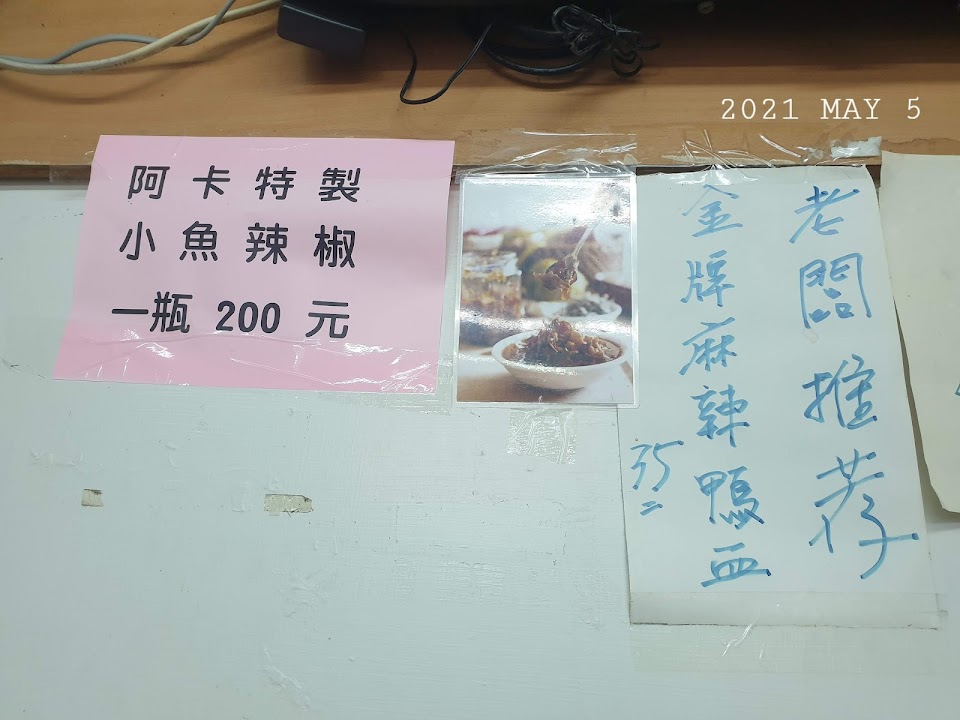 2021 MAY 5
阿卡特製
小魚辣椒
一瓶 200 元
老闆推荐
金牌麻辣鴨血
35